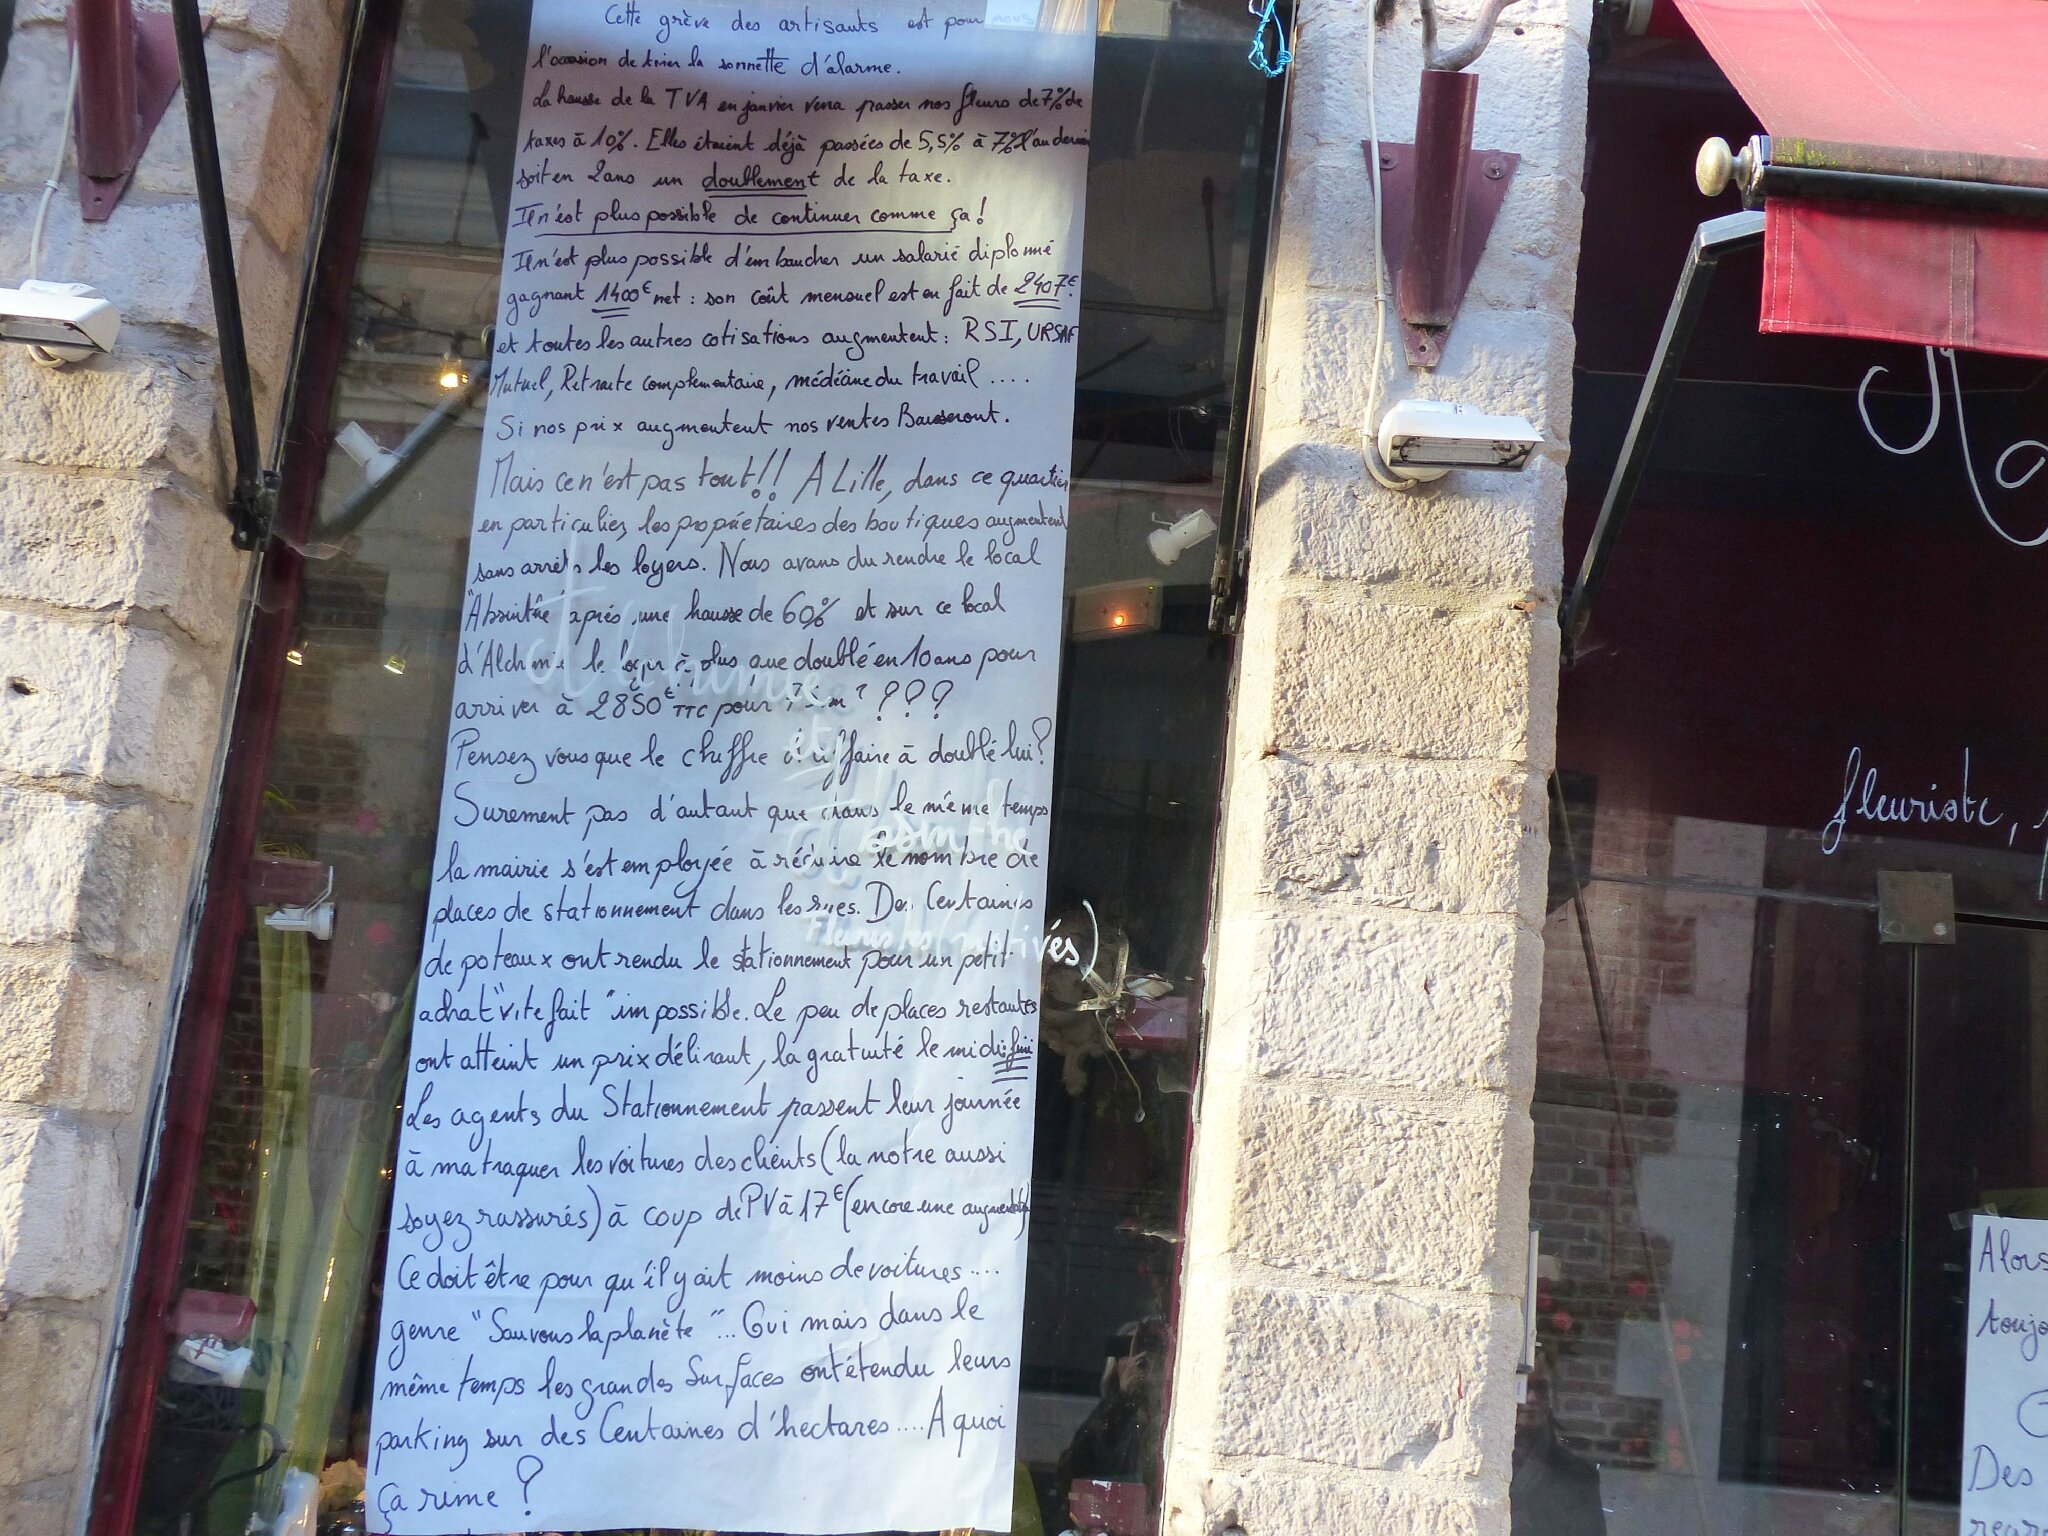 Cette grève des artisants est pour nous
l'occasion de tirer la sonnette d'alarme.
La hausse de la TVA en janvier verra passer nos fleurs de 7% de
taxes à 10%. Elles étaient déjà passées de 5,5% à 7% l'an dernier
soit en 2 ans un doublement de la taxe.
Il n'est plus possible de continuer comme ça !
Il n'est plus possible d'embaucher un salarié diplomé
gagnant 1400€ net : son coût mensuel est en fait de 2407€.
et toutes les autres cotisations augmentent : RSI, URSAF
Mutuel, Retraite complementaire, médécine du travail ....
Si nos prix augmentent nos ventes Baisseront.
Mais ce n'est pas tout !! A Lille, dans ce quartier
en particulier, les propriétaires des boutiques augmentent
sans arrêts les loyers. Nous avons du rendre le local
"Absinthe" après une hausse de 60% et sur ce local
d'Alchimie le loyer à plus que doublé en 10 ans pour
arriver à 2850€ TTC pour ???
Pensez vous que le chiffre d'affaire à doublé lui ?
Surement pas d'autant que dans le même temps
la mairie s'est employée à réduire le nombre de
places de stationnement dans les rues. Des Centaines
de poteaux ont rendu le stationnement pour un petit
achat "vite fait" impossible. Le peu de places restantes
ont atteint un prix délirant, la gratuité le midi : fini
Les agents du Stationnement passent leur journée
à matraquer les voitures des clients (la notre aussi
soyez rassurés) à coup de PV à 17€ (encore une augmentation)
Ce doit être pour qu'il y ait moins de voitures ....
genre "Sauvons la planète"... Oui mais dans le
même temps les grandes Surfaces ont étendu leurs
parking sur des Centaines d'hectares .... A quoi
ça rime ?
Alchimie
et
d'Absinthe
fleuriste,
Alors
Des